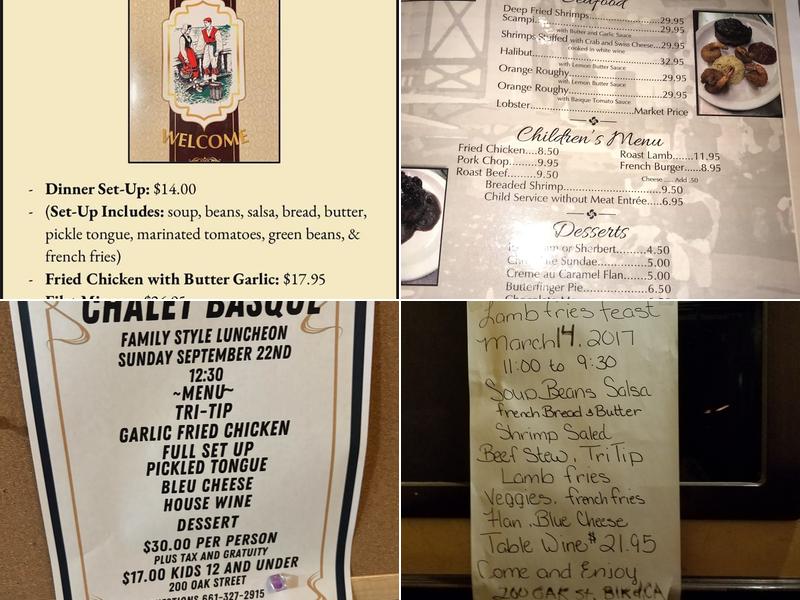 WELCOME
- Dinner Set-Up: $14.00
- (Set-Up Includes: soup, beans, salsa, bread, butter,
pickle tongue, marinated tomatoes, green beans, &
french fries)
- Fried Chicken with Butter Garlic: $17.95
Seafood
Deep Fried Shrimps 29.95
Scampi 29.95
with Butter and Garlic Sauce
Shrimps Stuffed with Crab and Swiss Cheese...29.95
cooked in white wine
Halibut 32.95
with Lemon Butter Sauce
Orange Roughy 29.95
with Lemon Butter Sauce
Orange Roughy 29.95
with Basque Tomato Sauce
Lobster Market Price
Children's Menu
Fried Chicken....8.50
Pork Chop....9.95
Roast Beef....9.50
Roast Lamb......11.95
French Burger......8.95
Cheese ...... Add .50
Breaded Shrimp 9.50
Child Service without Meat Entrée.....6.95
Desserts
or Sherbert 4.50
Sundae 5.00
Creme au Caramel Flan 5.00
Butterfinger Pie 6.50
CHALET BASQUE
FAMILY STYLE LUNCHEON
SUNDAY SEPTEMBER 22ND
12:30
~MENU~
TRI-TIP
GARLIC FRIED CHICKEN
FULL SET UP
PICKLED TONGUE
BLEU CHEESE
HOUSE WINE
DESSERT
$30.00 PER PERSON
PLUS TAX AND GRATUITY
$17.00 KIDS 12 AND UNDER
200 OAK STREET
QUESTIONS 661-327-2915
Lamb fries feast
March 14, 2017
11:00 to 9:30
Soup Beans Salsa
french Bread & Butter
Shrimp Saled
Beef Stew, Tri Tip
Lamb fries
Veggies, french fries
Flan, Blue Cheese
Table Wine $21.95
Come and Enjoy
200 OAK St. Bkfd CA